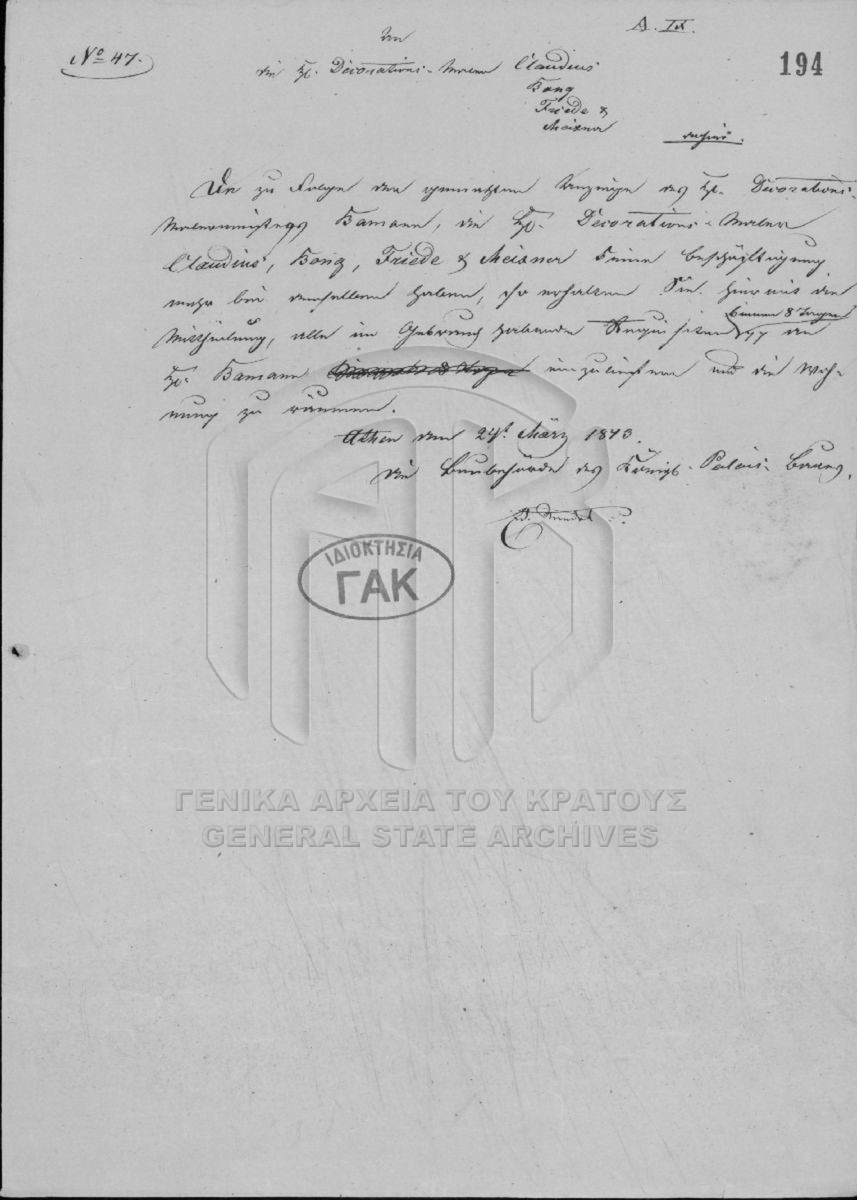 A. IX.
No 47.
194
An
die H. Decorations-Maler Claudius
Bong
Friede &
Meixner
dahier.
Da zu Folge der gemachten Anzeige des H. Decorations-
Malermeisters Bamann, die H. Decorations-Maler
Claudius, Bong, Friede & Meixner keine Beschäftigung
mehr bei demselben haben, so erhalten Sie hiermit die
Mittheilung, alle im Gebrauch habende Requisiten binnen 8 Tagen an
H. Bamann einzuliefern und die Woh-
nung zu räumen.
Athen den 24t. März 1843.
Die Baubehörde des Königs-Palais-Baues.
ΙΔΙΟΚΤΗΣΙΑ
ΓΑΚ
ΓΕΝΙΚΑ ΑΡΧΕΙΑ ΤΟΥ ΚΡΑΤΟΥΣ
GENERAL STATE ARCHIVES